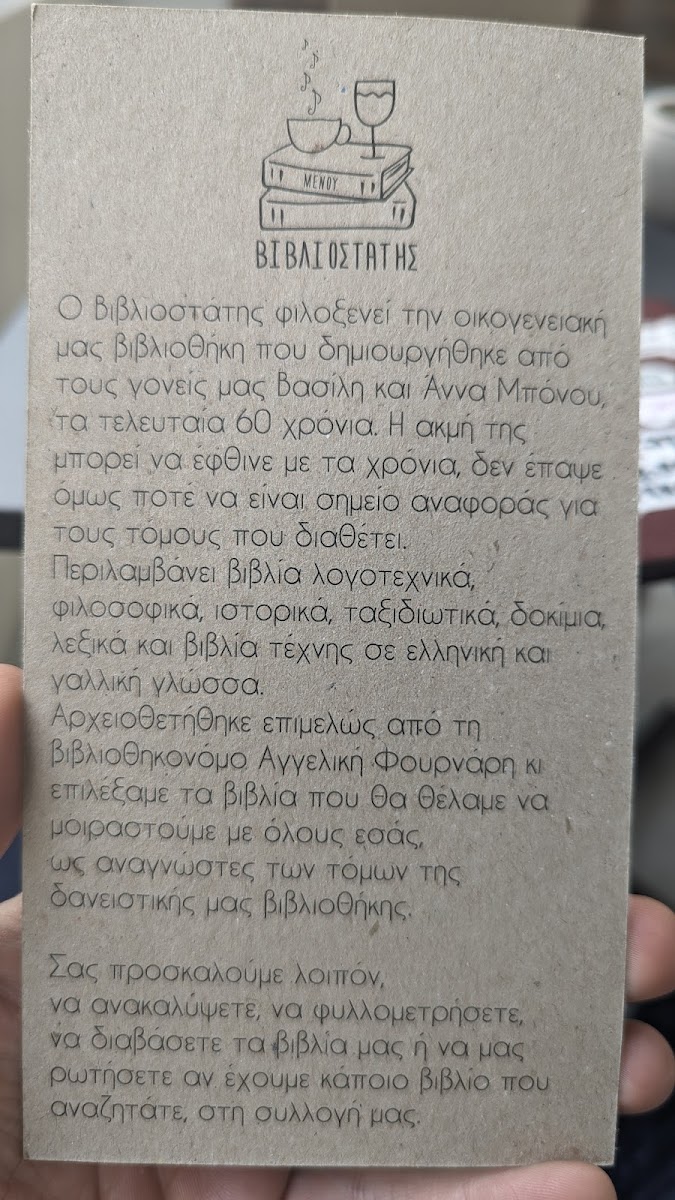 ΜΕΝΟΥ
ΒΙΒΛΙΟΣΤΑΤΗΣ
Ο Βιβλιοστάτης φιλοξενεί την οικογενειακή
μας βιβλιοθήκη που δημιουργήθηκε από
τους γονείς μας Βασίλη και Άννα Μπόνου,
τα τελευταία 60 χρόνια. Η ακμή της
μπορεί να έφθινε με τα χρόνια, δεν έπαψε
όμως ποτέ να είναι σημείο αναφοράς για
τους τόμους που διαθέτει.
Περιλαμβάνει βιβλία λογοτεχνικά,
φιλοσοφικά, ιστορικά, ταξιδιωτικά, δοκίμια,
λεξικά και βιβλία τέχνης σε ελληνική και
γαλλική γλώσσα.
Αρχειοθετήθηκε επιμελώς από τη
βιβλιοθηκονόμο Αγγελική Φουρνάρη κι
επιλέξαμε τα βιβλία που θα θέλαμε να
μοιραστούμε με όλους εσάς,
ως αναγνώστες των τόμων της
δανειστικής μας βιβλιοθήκης.
Σας προσκαλούμε λοιπόν,
να ανακαλύψετε, να φυλλομετρήσετε,
να διαβάσετε τα βιβλία μας ή να μας
ρωτήσετε αν έχουμε κάποιο βιβλίο που
αναζητάτε, στη συλλογή μας.